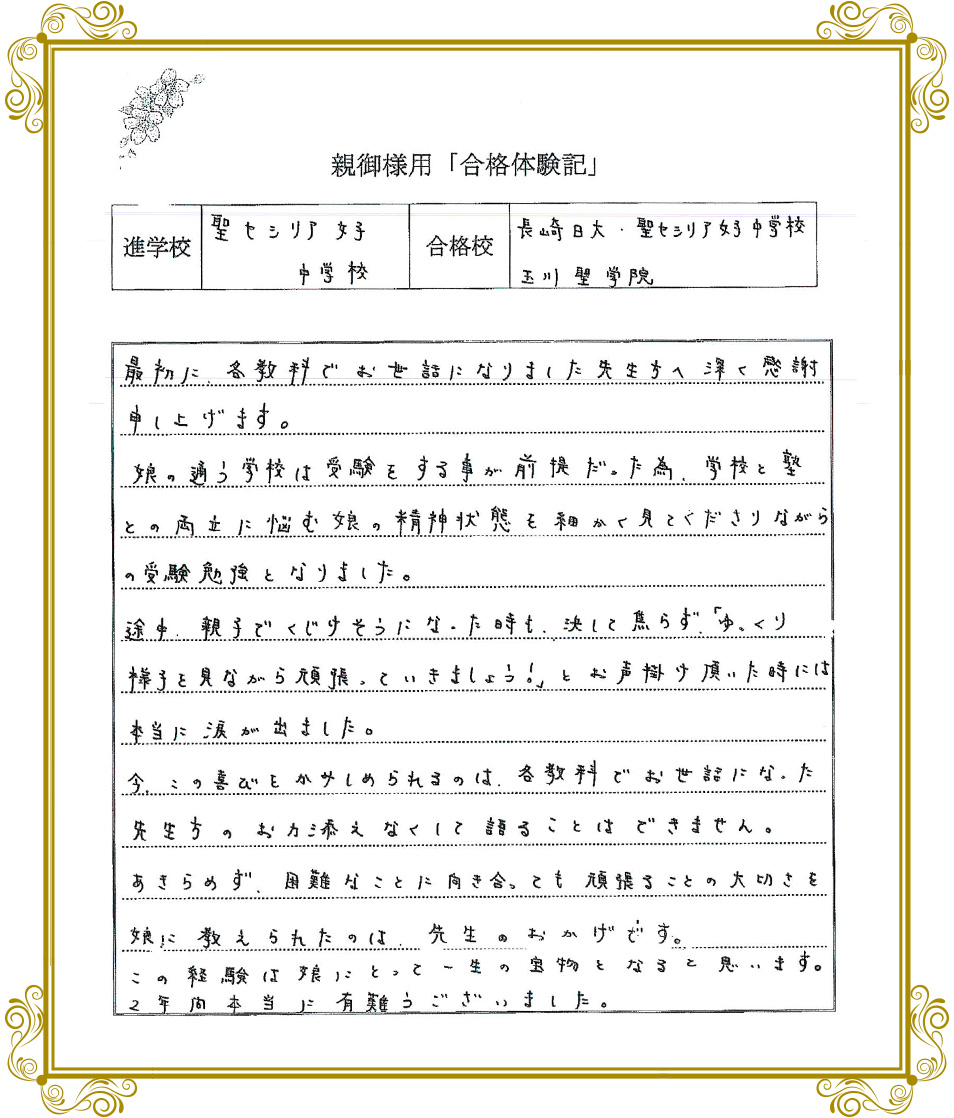 親御様用「合格体験記」
進学校
聖セシリア女子
中学校
合格校
長崎日大・聖セシリア女子中学校
玉川聖学院
最初に、各教科でお世話になりました先生方へ深く感謝
申し上げます。
娘の通う学校は受験をする事が前提だった為、学校と塾
との両立に悩む娘の精神状態を細かく見てくださりながら
の受験勉強となりました。
途中、親子でくじけそうになった時も、決して焦らず、「ゆっくり
様子を見ながら頑張っていきましょう!」とお声掛け頂いた時には
本当に涙が出ました。
今、この喜びをかみしめられるのは、各教科でお世話になった
先生方のお力添えなくして語ることはできません。
あきらめず、困難なことに向き合っても頑張ることの大切さを
娘に教えられたのは、先生のおかげです。
この経験は娘にとって一生の宝物となると思います。
2年間本当に有難うございました。